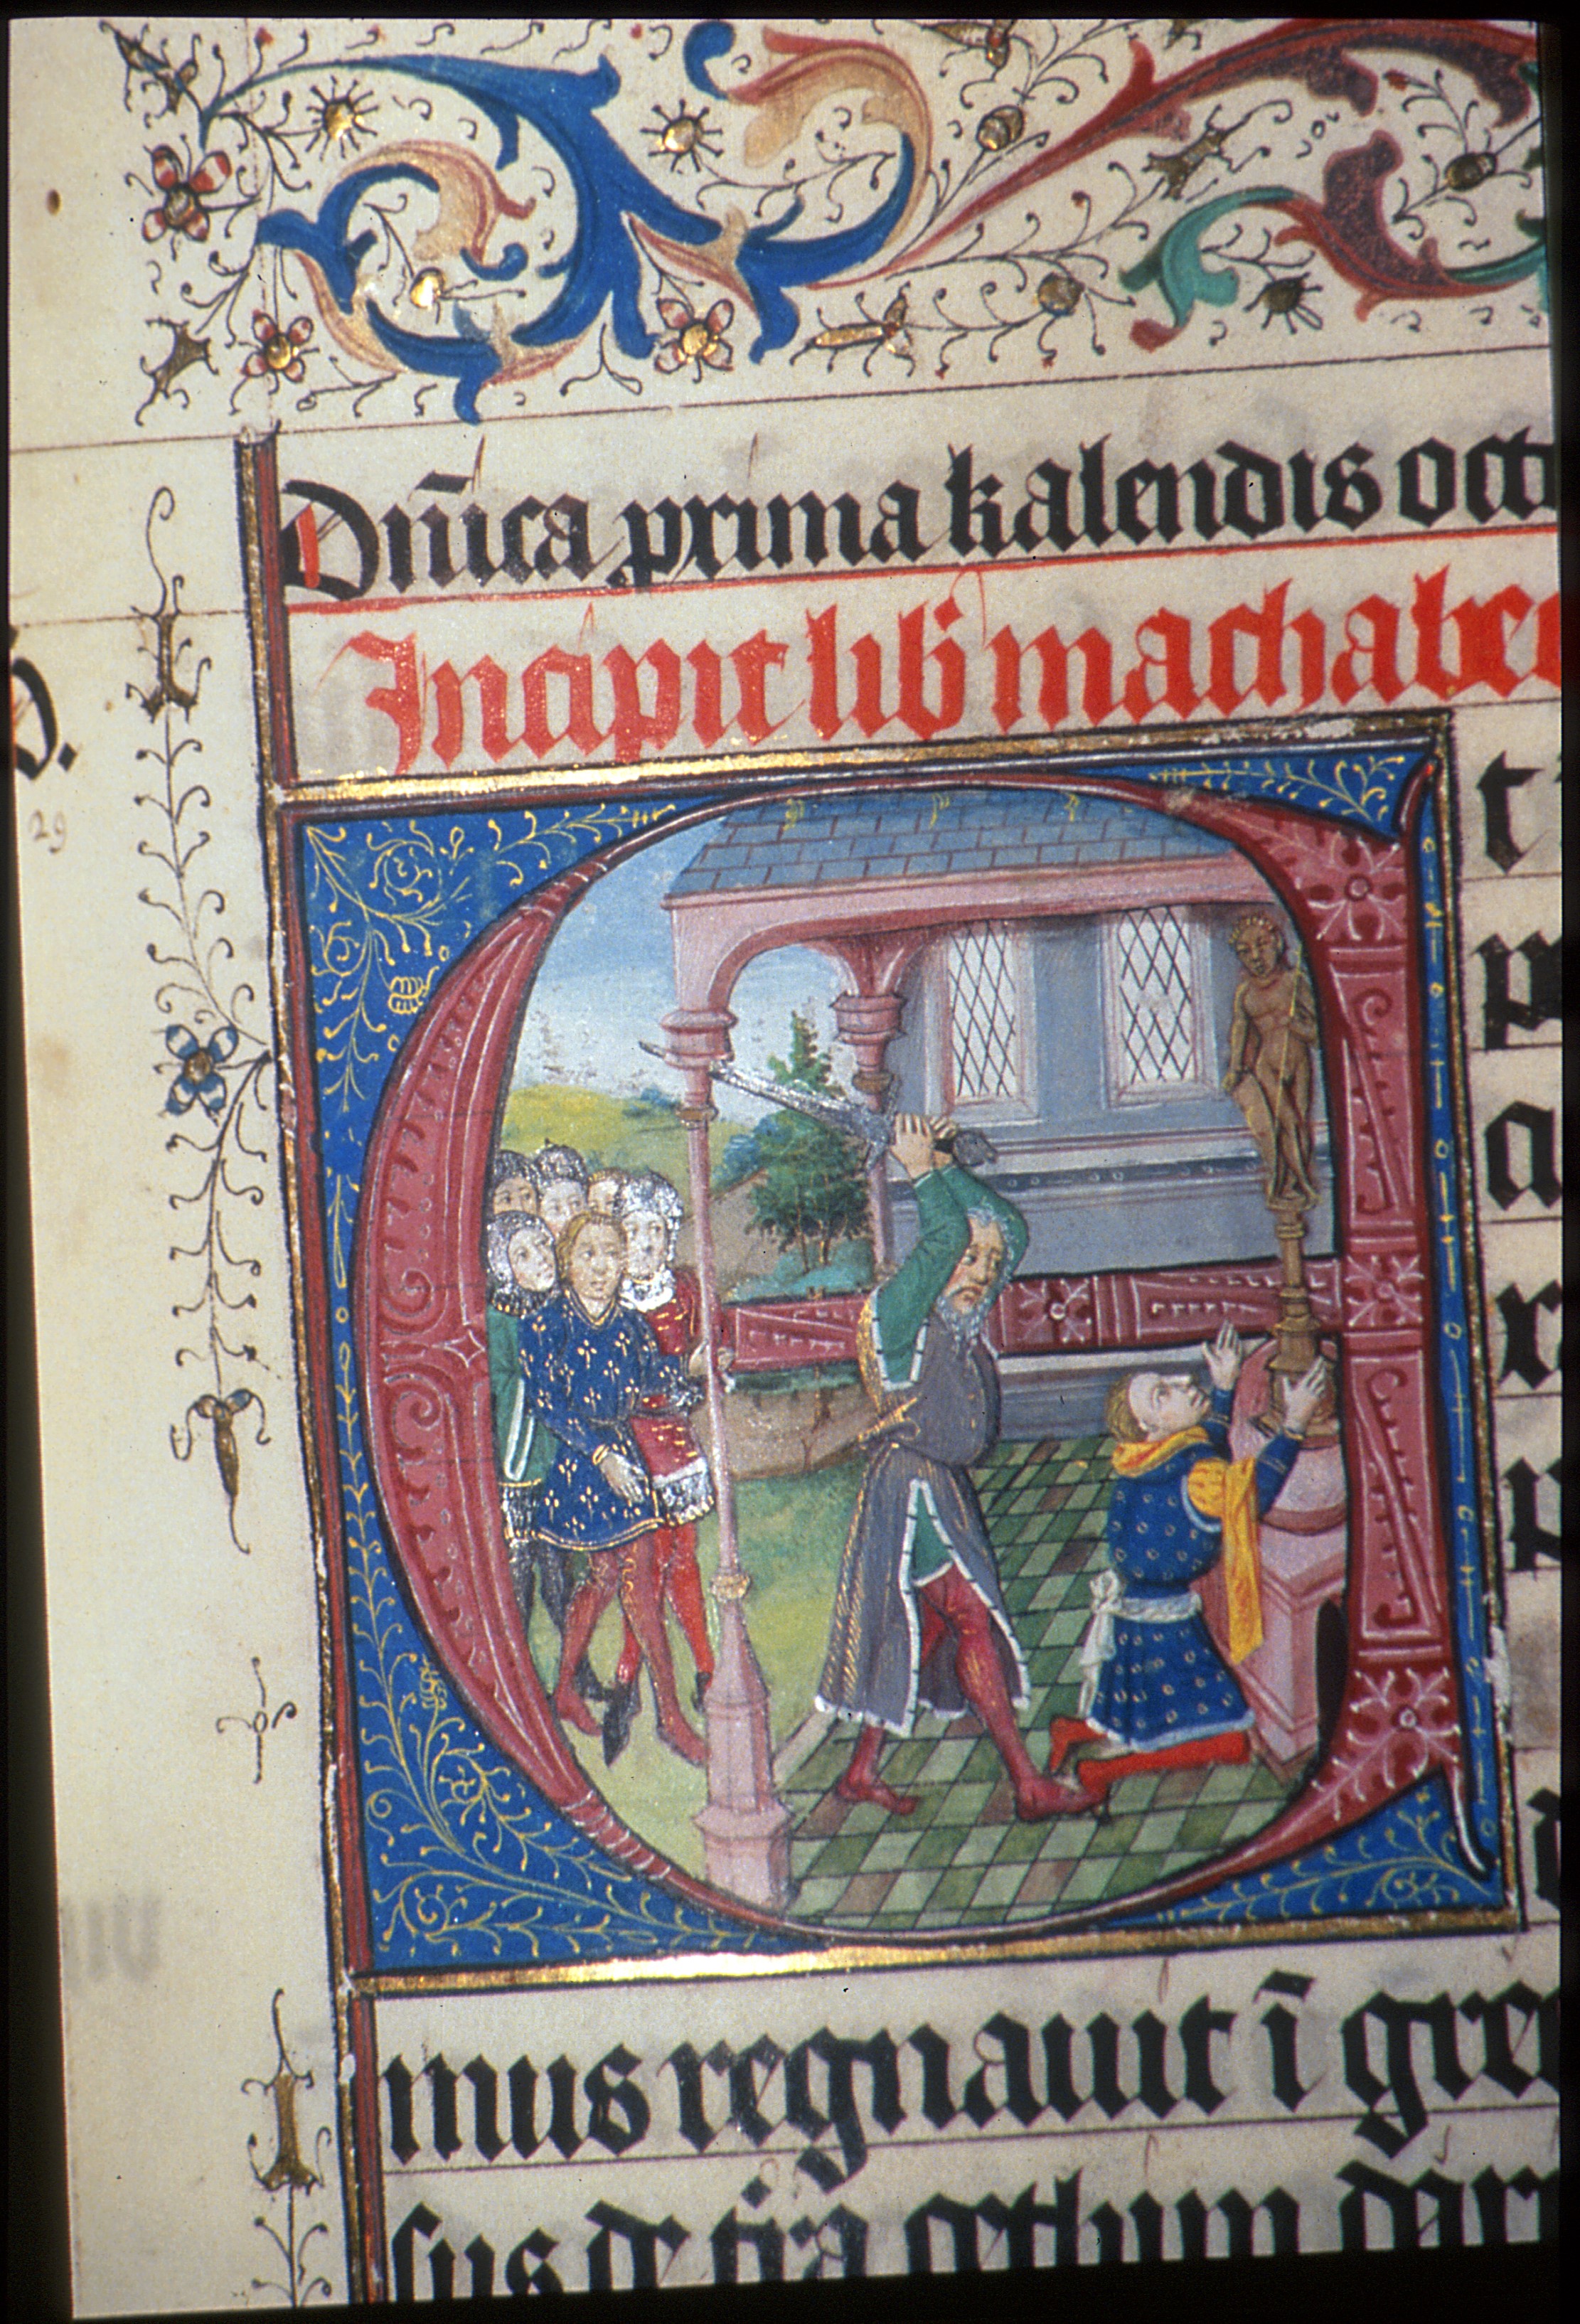 Dn̄ica prima kalendis oct
Incipit lib machabeo
E t
p
a
r
p
mus regnauit ī gre
sus de tr̄a cethim dar
29